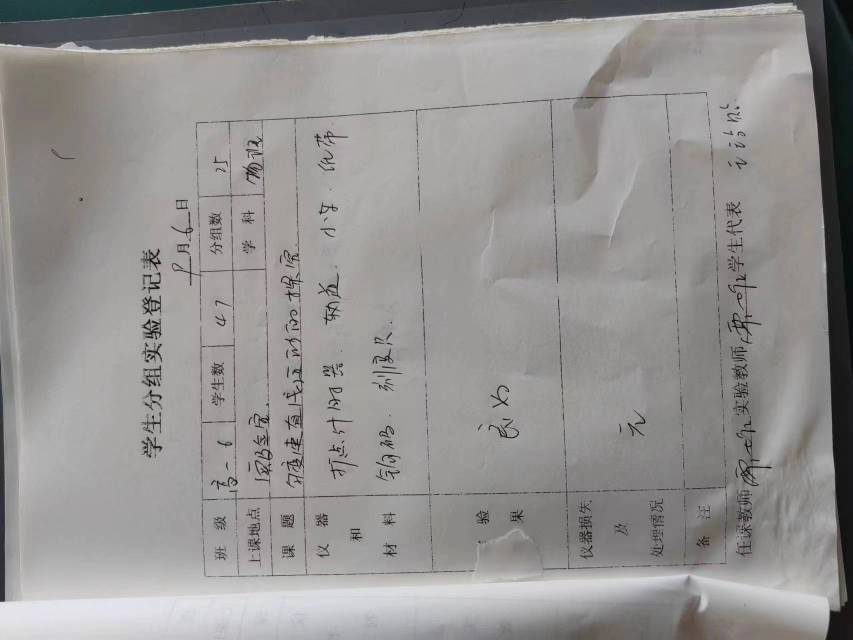 学生分组实验登记表
9月6日
班 级 高一6 学生数 47 分组数 25
上课地点 实验室 学 科 物理
课 题 匀变速直线运动的探究
仪 器 和 材 料 打点计时器、轨道、小车、纸带、
钩码、刻度尺
验 果 良好
仪器损失 及 处理情况 无
备 注
任课教师 实验教师 学生代表